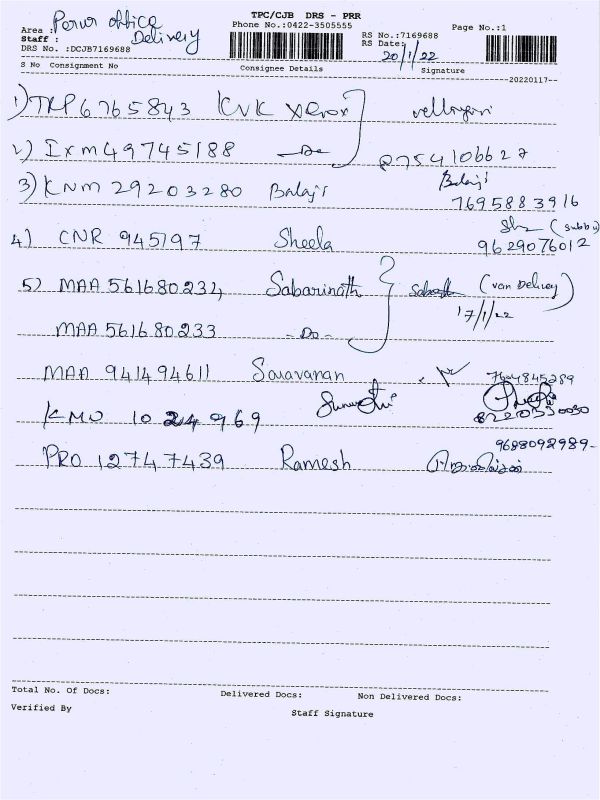 TPC/CJB DRS - PRR
Area : Perur office
Delivery
Phone No.:0422-3505555
RS No.:7169688
Page No.:1
Staff :
RS Date: 20/1/22
DRS No. :DCJB7169688
S No Consignment No Consignee Details Signature
20220117
1) TRP6765843 KVK Xerox
2) Ixm49745188 - Do - 8754106627
3) KNM 29203280 Balaji Balaji
7695883916
4) CNR 945197 Sheela (Subbu)
9629076012
5) MAA 561680234 Sabarinath (van Delivery)
17/1/22
MAA 561680233 - Do -
MAA 941494611 Saravanan
KMU 1024969 8220330030
PRO 12747439 Ramesh 9688092989-
Total No. Of Docs: Delivered Docs: Non Delivered Docs:
Verified By Staff Signature